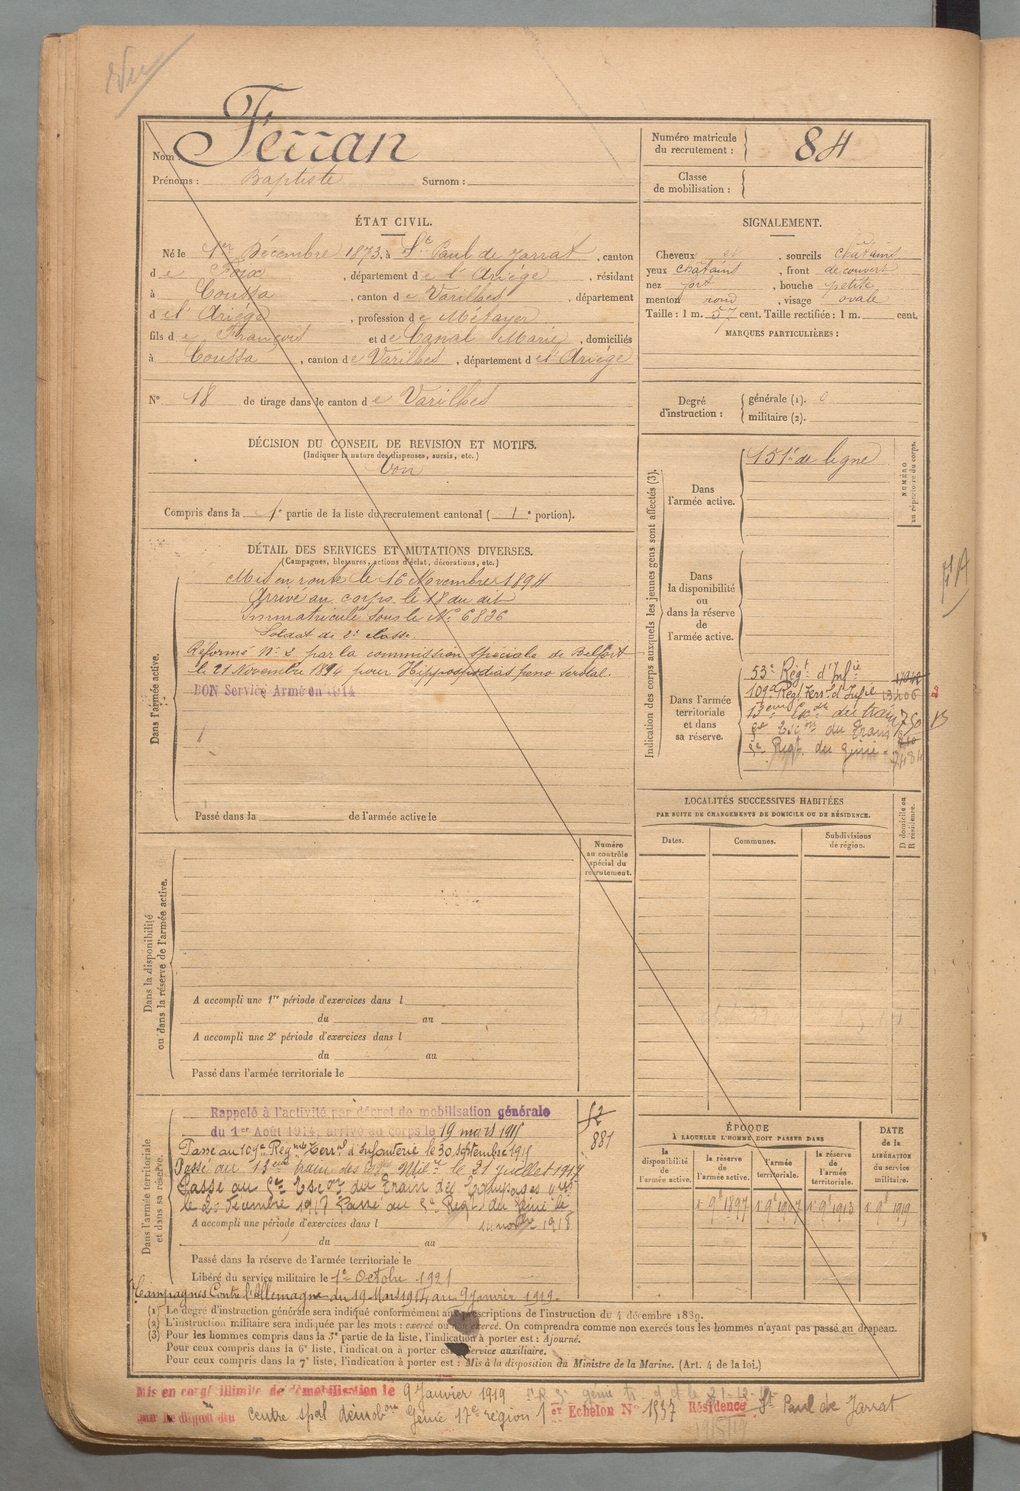 Vu
Nom : Ferran
Prénoms : Baptiste Surnom :
Numéro matricule du recrutement : 84
Classe de mobilisation :
ÉTAT CIVIL.
Né le 1er Décembre 1873, à St Paul de Jarrat, canton
de Foix, département de l'Ariége, résidant
à Coussa, canton de Varilhes, département
de l'Ariége, profession de Métayer
fils de François et de Canal Marie, domiciliés
à Coussa, canton de Varilhes, département de l'Ariége
N° 18 de tirage dans le canton de Varilhes
SIGNALEMENT.
Cheveux et, sourcils chatains
yeux chatains, front découvert
nez fort, bouche petite
menton rond, visage ovale
Taille : 1 m. 57 cent. Taille rectifiée : 1 m. cent.
MARQUES PARTICULIÈRES :
Degré d'instruction : générale (1). 0
militaire (2).
DÉCISION DU CONSEIL DE REVISION ET MOTIFS.
(Indiquer la nature des dispenses, sursis, etc.)
Bon
Compris dans la 1e partie de la liste du recrutement cantonal (1e portion).
DÉTAIL DES SERVICES ET MUTATIONS DIVERSES.
(Campagnes, blessures, actions d'éclat, décorations, etc.)
Dans l'armée active.
Mis en route le 16 Novembre 1894
Arrivé au corps le 18 du dit
Immatriculé sous le N° 6836
Soldat de 2e classe.
Réformé N° 2 par la commission spéciale de Belfort
le 21 Novembre 1894 pour Hippospadias
BON Service Armé en 1914
Passé dans la de l'armée active le
Indication des corps auxquels les jeunes gens sont affectés (3).
Dans l'armée active.
151e de ligne
NUMÉRO au répertoire du corps.
Dans la disponibilité ou dans la réserve de l'armée active.
Dans l'armée territoriale et dans sa réserve.
53e Régt d'Infie
109e Régt Terr. d'Infie 13406
du train
du Train
Régt du génie
LOCALITÉS SUCCESSIVES HABITÉES
PAR SUITE DE CHANGEMENTS DE DOMICILE OU DE RÉSIDENCE.
Dates. Communes. Subdivisions de région.
D domicile ou R résidence.
Numéro au contrôle spécial du recrutement.
Dans la disponibilité ou dans la réserve de l'armée active.
A accompli une 1re période d'exercices dans l
du au
A accompli une 2e période d'exercices dans l
du au
Passé dans l'armée territoriale le
Dans l'armée territoriale et dans sa réserve.
Rappelé à l'activité par décret de mobilisation générale
du 1er Août 1914, arrivé au corps le 19 mars 1915
Passé au 109e Régt Terral d'Infanterie le 30 septembre 1915
Passé au train des le 31 juillet 1917
Passé au du Train des Equipages
le Décembre 1917 Passé au Régt du Génie le
881
A accompli une période d'exercices dans l 1918
du au
Passé dans la réserve de l'armée territoriale le
Libéré du service militaire le 1er Octobre 1921
Campagnes Contre l'Allemagne du 19 Mars 1915 au 9 Janvier 1919.
ÉPOQUE
À LAQUELLE L'HOMME DOIT PASSER DANS
la disponibilité de l'armée active.
la réserve de l'armée active.
l'armée territoriale.
la réserve de l'armée territoriale.
DATE de la LIBÉRATION du service militaire.
1897 1907 1913 1919
(1) Le degré d'instruction générale sera indiqué conformément aux prescriptions de l'instruction du 4 décembre 1889.
(2) L'instruction militaire sera indiquée par les mots : exercé ou non exercé. On comprendra comme non exercés tous les hommes n'ayant pas passé au drapeau.
(3) Pour les hommes compris dans la 5e partie de la liste, l'indication à porter est : Ajourné.
Pour ceux compris dans la 6e liste, l'indication à porter est : Service auxiliaire.
Pour ceux compris dans la 7e liste, l'indication à porter est : Mis à la disposition du Ministre de la Marine. (Art. 4 de la loi.)
Mis en congé illimité de démobilisation le 9 Janvier 1919
par le dépôt du centre spal démobon Génie 17e région 1er Échelon N° 1537 Résidence St Paul de Jarrat